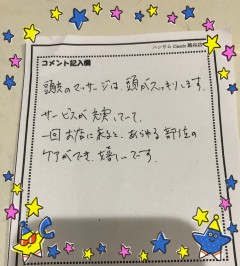 ハンサム Classic
コメント記入欄
頭皮のマッサージは、頭がスッキリします。
サービスが充実してて、
一回お店に来ると、あらゆる部位の
ケアができ、嬉しいです。